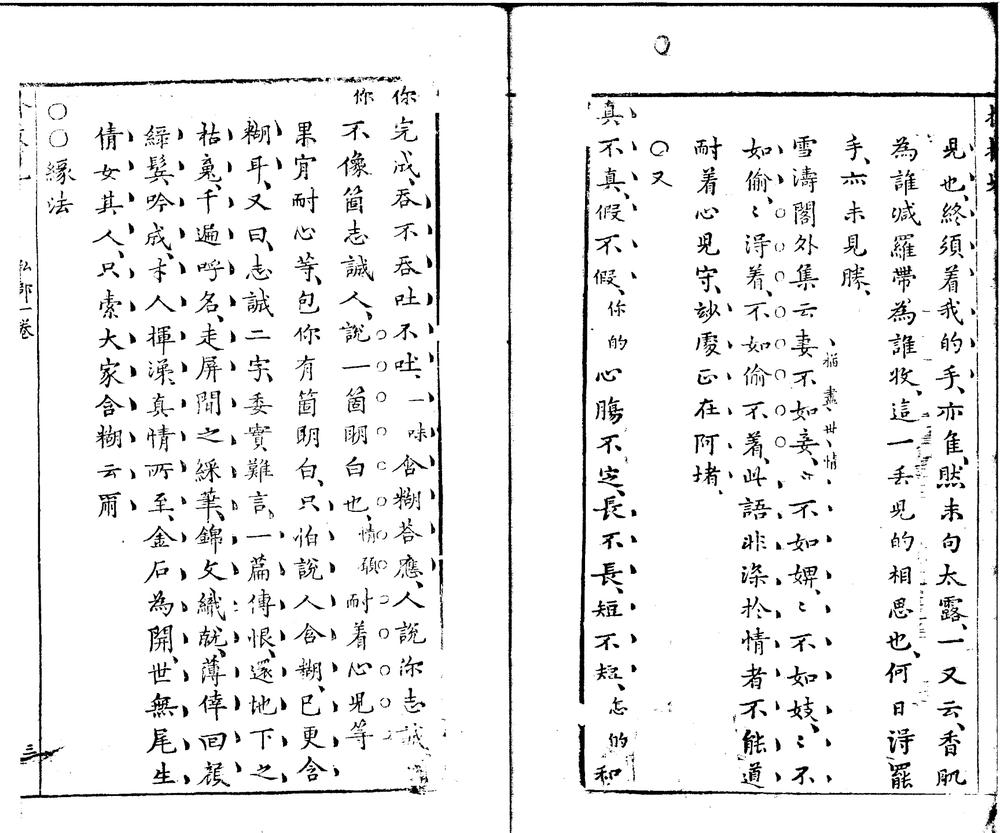 児也、終須着我的手、亦隹、然末句太露、一又云、香肌
為誰減羅帶為誰收、這一丢児的相思也、何日淂罷
手、亦未見勝、
雪濤閣外集云妻不如妾、〻不如婢、〻不如妓、〻不
描盡世情
如偷、〻淂着、不如偷不着、此語非深於情者不能道
耐着心児守、玅處正在阿堵、
○又
真不真、假不假、你的心腸不定、長不長、短不短、志的和
你完成、吞不吞吐不吐、一味含糊荅應、人說你志誠
你不像箇志誠人、說一箇明白也、情願耐着心児等
果肯耐心等、包你有箇明白、只怕說人含糊、已更含
糊耳、又曰、志誠二字、委實難言、一篇傳恨、還地下之
枯䰟、千遍呼名、走屏間之綵華、錦文織就、薄倖回顏
綠鬂吟成、才人揮淚、真情所至、金石為開、世無尾生
倩女其人、只索大家含糊云爾
○○緣法
私部一卷
三